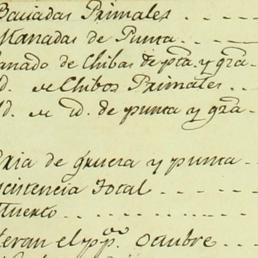 Baciadas Primales
Manadas de Punta
anado de Chibas de pta. y gra.
d. de Chibos Primales
d. de id. de punta y gra.
Cria de gruesa y punta
xistencia Total
Muerto
eran el pp.º Octubre